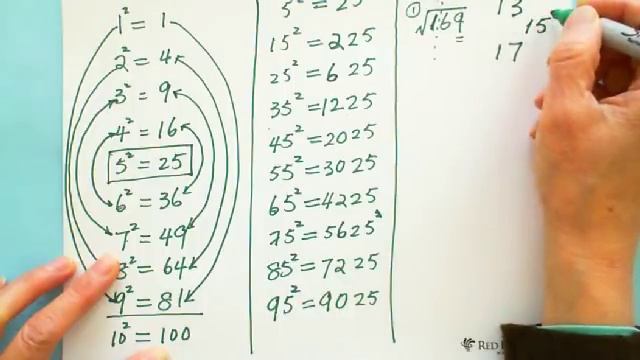 1² = 1
2² = 4
3² = 9
4² = 16
5² = 25
6² = 36
7² = 49
8² = 64
9² = 81
10² = 100
5² = 25
15² = 225
25² = 625
35² = 1225
45² = 2025
55² = 3025
65² = 4225
75² = 5625
85² = 7225
95² = 9025
① √169 13
15
17
RED